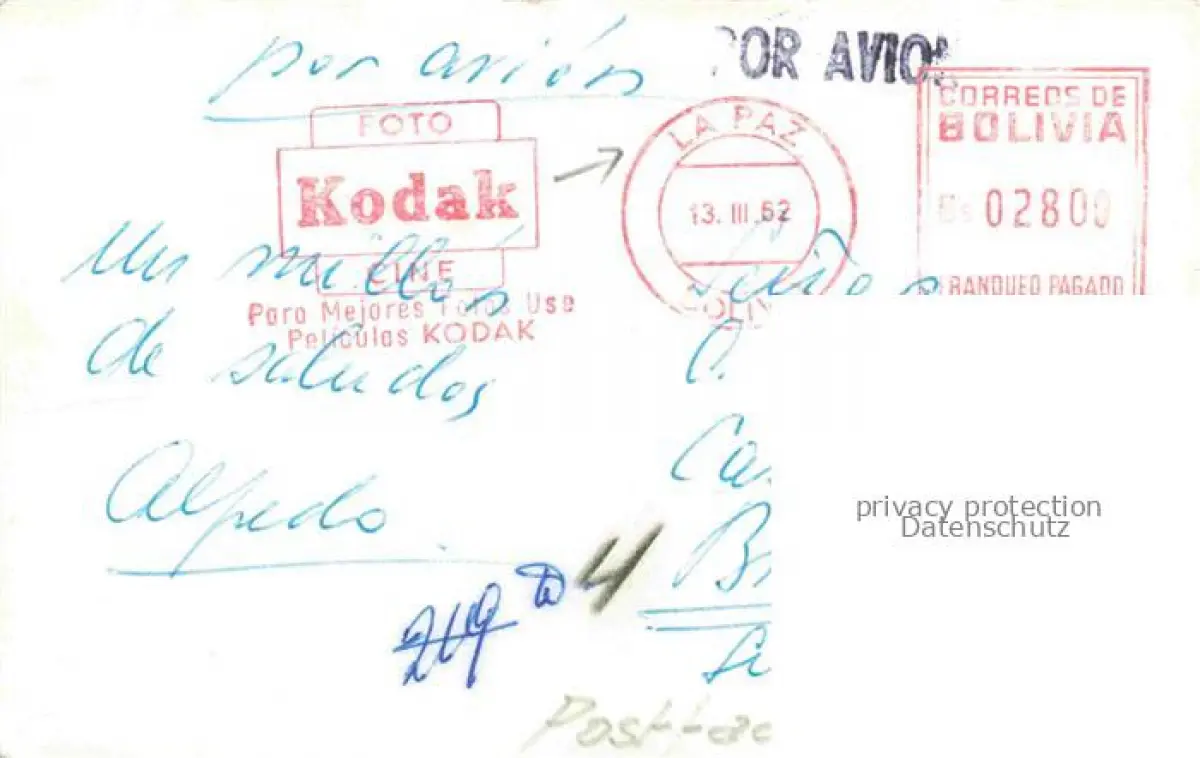 por avión
POR AVION
FOTO
Kodak
CINE
Para Mejores Fotos Use
Películas KODAK
LA PAZ
13. III. 62
BOLIV
CORREOS DE
BOLIVIA
Bs 02800
FRANQUEO PAGADO
Un millón
de saludos
Alfredo
4
privacy protection
Datenschutz